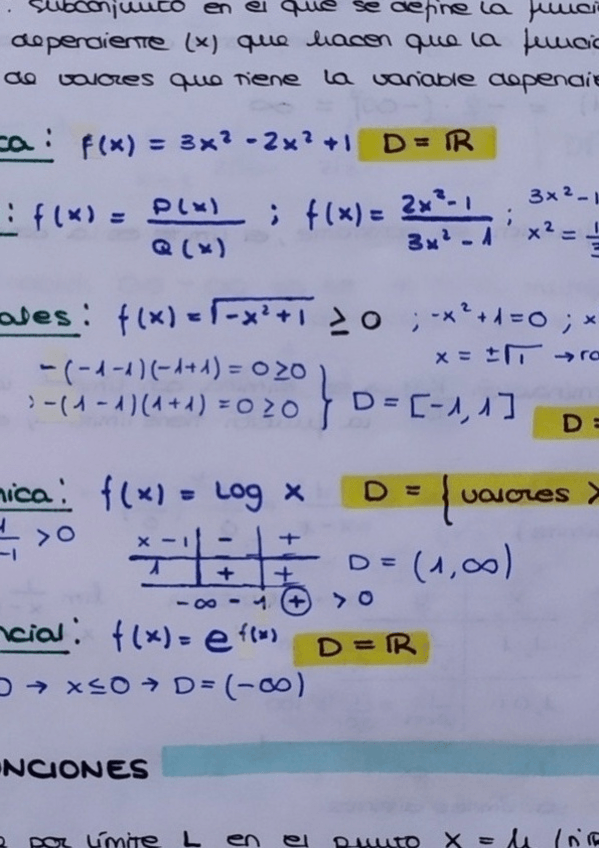 . subconjunto en el que se define la funci
dependiente (x) que hacen que la funci
de valores que tiene la variable dependie
ca: f(x) = 3x² - 2x² + 1 D = ℝ
: f(x) = P(x)/Q(x) ; f(x) = 2x² - 1/3x² - 1 ; 3x² - 1
x² = 1/3
ales: f(x) = √-x² + 1 ≥ 0 ; -x² + 1 = 0 ; x
x = ±√1 → ro
-(-1-1)(-1+1) = 0 ≥ 0
-(1-1)(1+1) = 0 ≥ 0 } D = [-1, 1]
D =
mica: f(x) = Log x D = { valores >
1/-1 > 0
x - 1 | - | +
1 | + | +
-∞ - 1 (+) > 0
D = (1, ∞)
ncial: f(x) = e^f(x) D = ℝ
0 → x ≤ 0 → D = (-∞)
NCIONES
por límite L en el punto x =